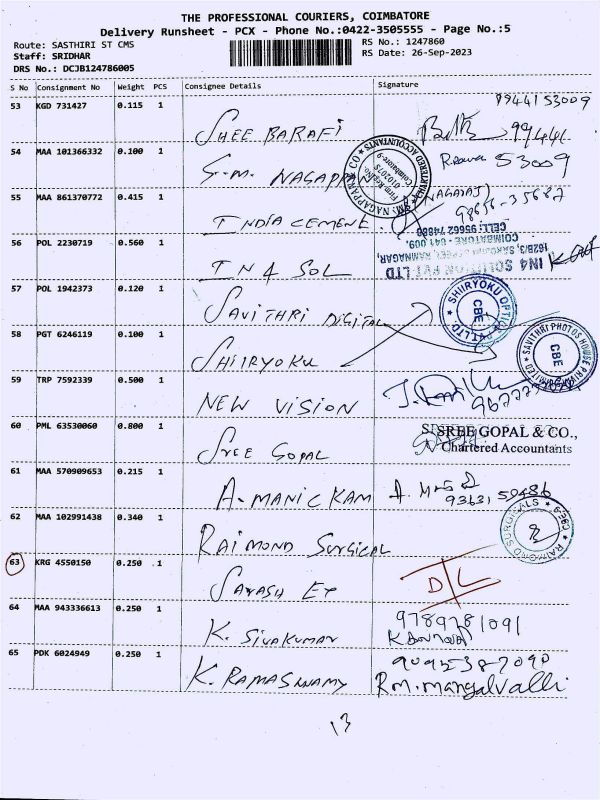 THE PROFESSIONAL COURIERS, COIMBATORE
Delivery Runsheet - PCX - Phone No.:0422-3505555 - Page No.:5
Route: SASTHIRI ST CMS
Staff: SRIDHAR
DRS No.: DCJB124786005
RS No.: 1247860
RS Date: 26-Sep-2023
S No Consignment No Weight PCS Consignee Details Signature
53 KGD 731427 0.115 1 SHEE BARATI 9944153009
99441
54 MAA 101366332 0.100 1 S.M. NAGAPPAN 53009
S.M. NAGAPPAN & CO CHARTERED ACCOUNTANTS Firm Regi.No. 010207S Coimbatore-9
55 MAA 861370772 0.415 1 INDIA CEMENT (NAGARAJ)
98656-35687
56 POL 2230719 0.560 1 IN 4 SOL
IN4 SOLUTION PVT LTD
162B/3, SAROJINI STREET, RAMNAGAR,
COIMBATORE - 641 009.
CELL: 95662 74888
57 POL 1942373 0.120 1 SAVITHRI DIGITAL
SHIIRYOKU OPTI PVT LTD CBE
58 PGT 6246119 0.100 1 SHIIRYOKU
SAVITHRI PHOTOS HOUSE PRIVATE LIMITED CBE
59 TRP 7592339 0.500 1 NEW VISION
60 PML 63530060 0.800 1 SREE GOPAL
SREE GOPAL & CO.,
Chartered Accountants
61 MAA 570909653 0.215 1 A. MANICKAM
93631 50486
62 MAA 102991438 0.340 1 RAIMOND SURGICAL
RAIMOND SURGICALS CBE-2
63 KRG 4550150 0.250 1 SAYASH ET D/L
64 MAA 943336613 0.250 1 K. SIVAKUMAR 9789781091
65 PDK 6024949 0.250 1 K. RAMASWAMY 9095387090
RM. mangalvalli
13